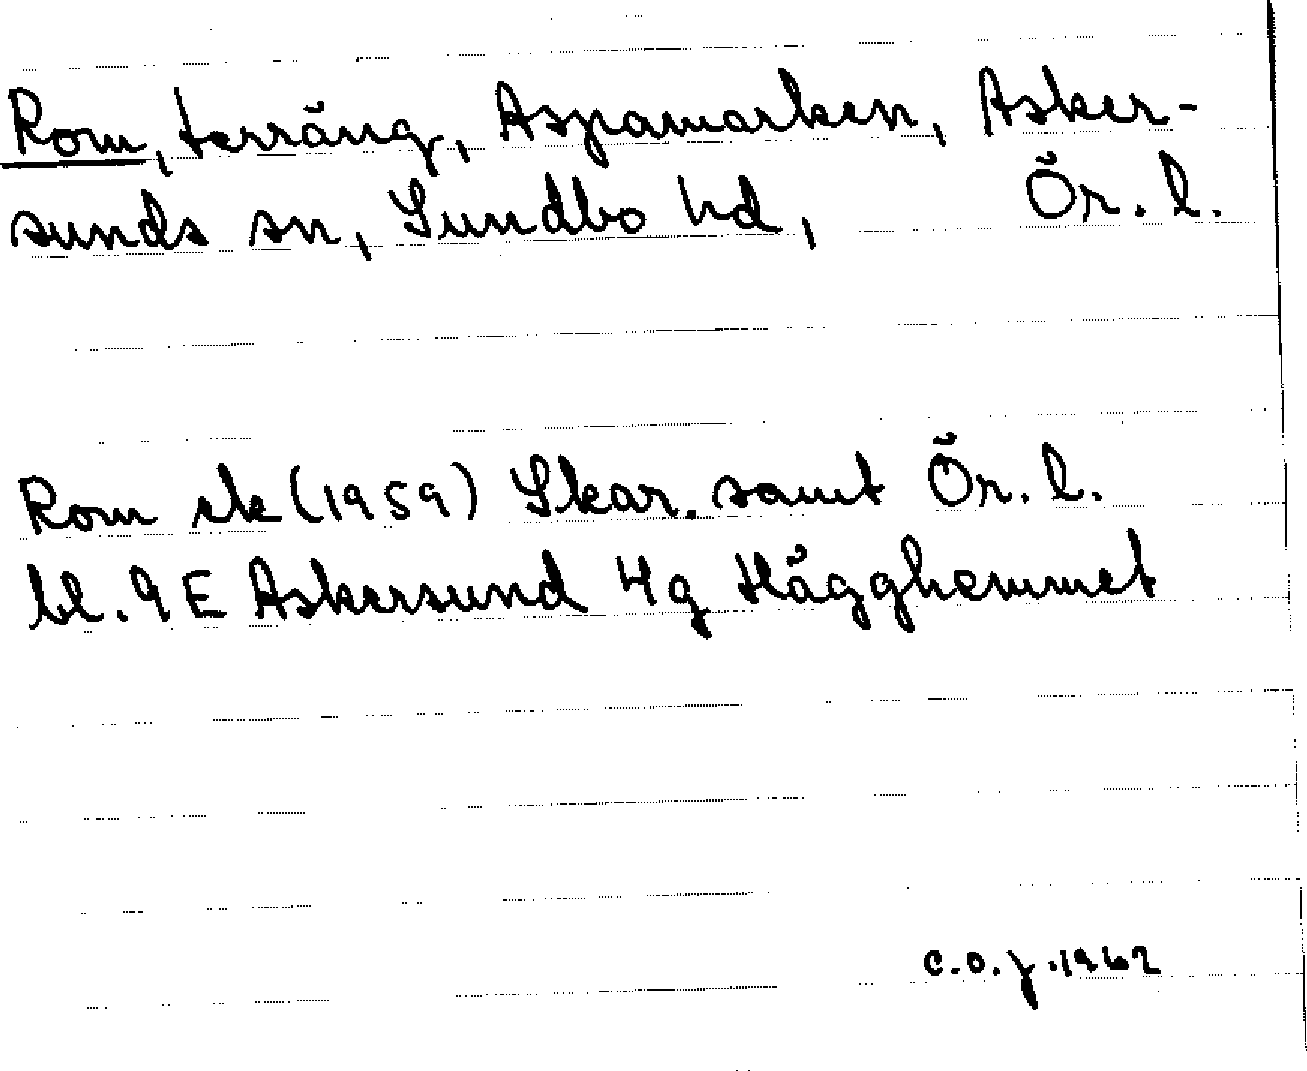 Rom, terräng, Aspamarken, Asker-
sunds sn, Sundbo hd, Ör. l.
Rom ek (1959) Skar. samt Ör. l.
bl. 9 E Askersund 4g Hägghemmet
C.O.J. 1962